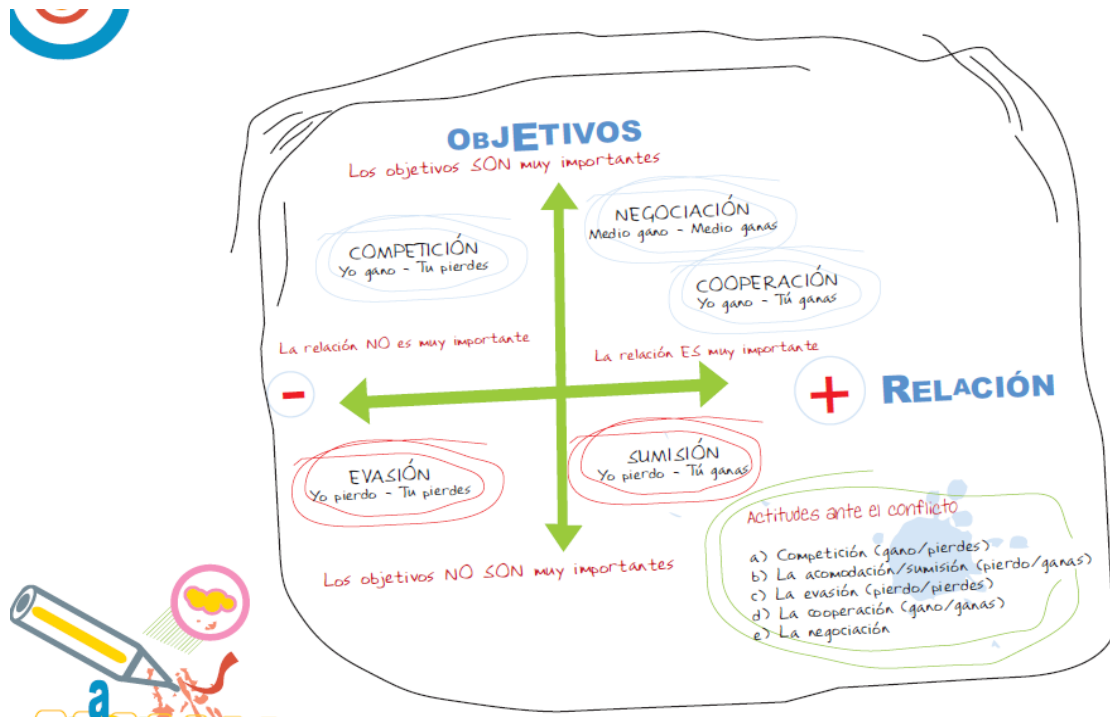 OBJETIVOS
Los objetivos SON muy importantes
NEGOCIACIÓN
Medio gano - Medio ganas
COMPETICIÓN
Yo gano - Tu pierdes
COOPERACIÓN
Yo gano - Tú ganas
La relación NO es muy importante
La relación ES muy importante
-
+
RELACIÓN
EVASIÓN
Yo pierdo - Tu pierdes
SUMISIÓN
Yo pierdo - Tú ganas
Los objetivos NO SON muy importantes
Actitudes ante el conflicto
a) Competición (gano/pierdes)
b) La acomodación/sumisión (pierdo/ganas)
c) La evasión (pierdo/pierdes)
d) La cooperación (gano/ganas)
e) La negociación
a